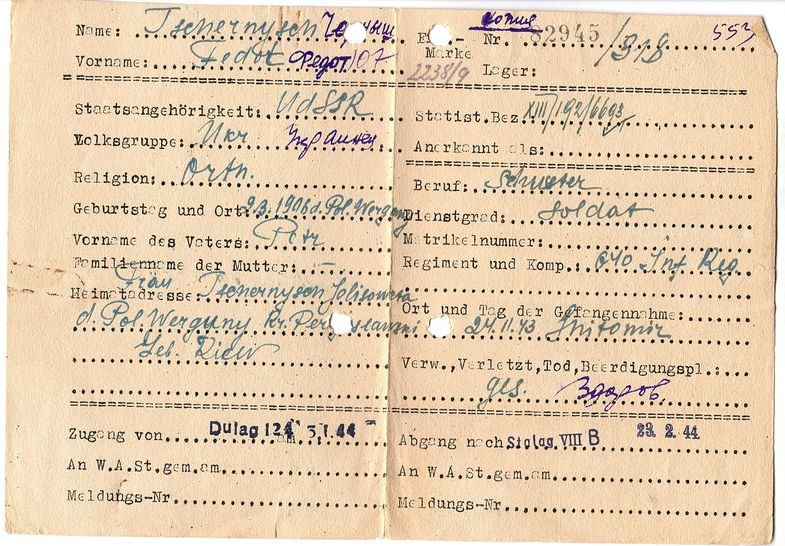 Name: Tschernysch Черныш
Vorname: Fedot Федот 107
копия 553
Erk.- Nr. 82945 /318
Marke 2238/9 Lager:
Staatsangehörigkeit: UdSSR
Volksgruppe: Ukr
Religion: Orth.
Geburtstag und Ort: 2.3.1906 d. Pol. Werguny
Vorname des Vaters: Petr
Familienname der Mutter: —
Heimatadresse: Frau Tschernysch
d. Pol. Werguny kr.
Geb. Kiew
Statist.Bez XIII/192/6693
Anerkannt als:
Beruf: Schuster
Dienstgrad: Soldat
Matrikelnummer:
Regiment und Komp.: 640 Inf Reg
Ort und Tag der Gefangennahme:
24.11.43 Shitomir
Verw.,Verletzt,Tod,Beerdigungspl.:
ges. Здоров
Zugang von Dulag 124 am 3.1.44
An W.A.St.gem.am
Meldungs-Nr
Abgang nach Stalag VIII B 23.2.44
An W.A.St.gem.am
Meldungs-Nr